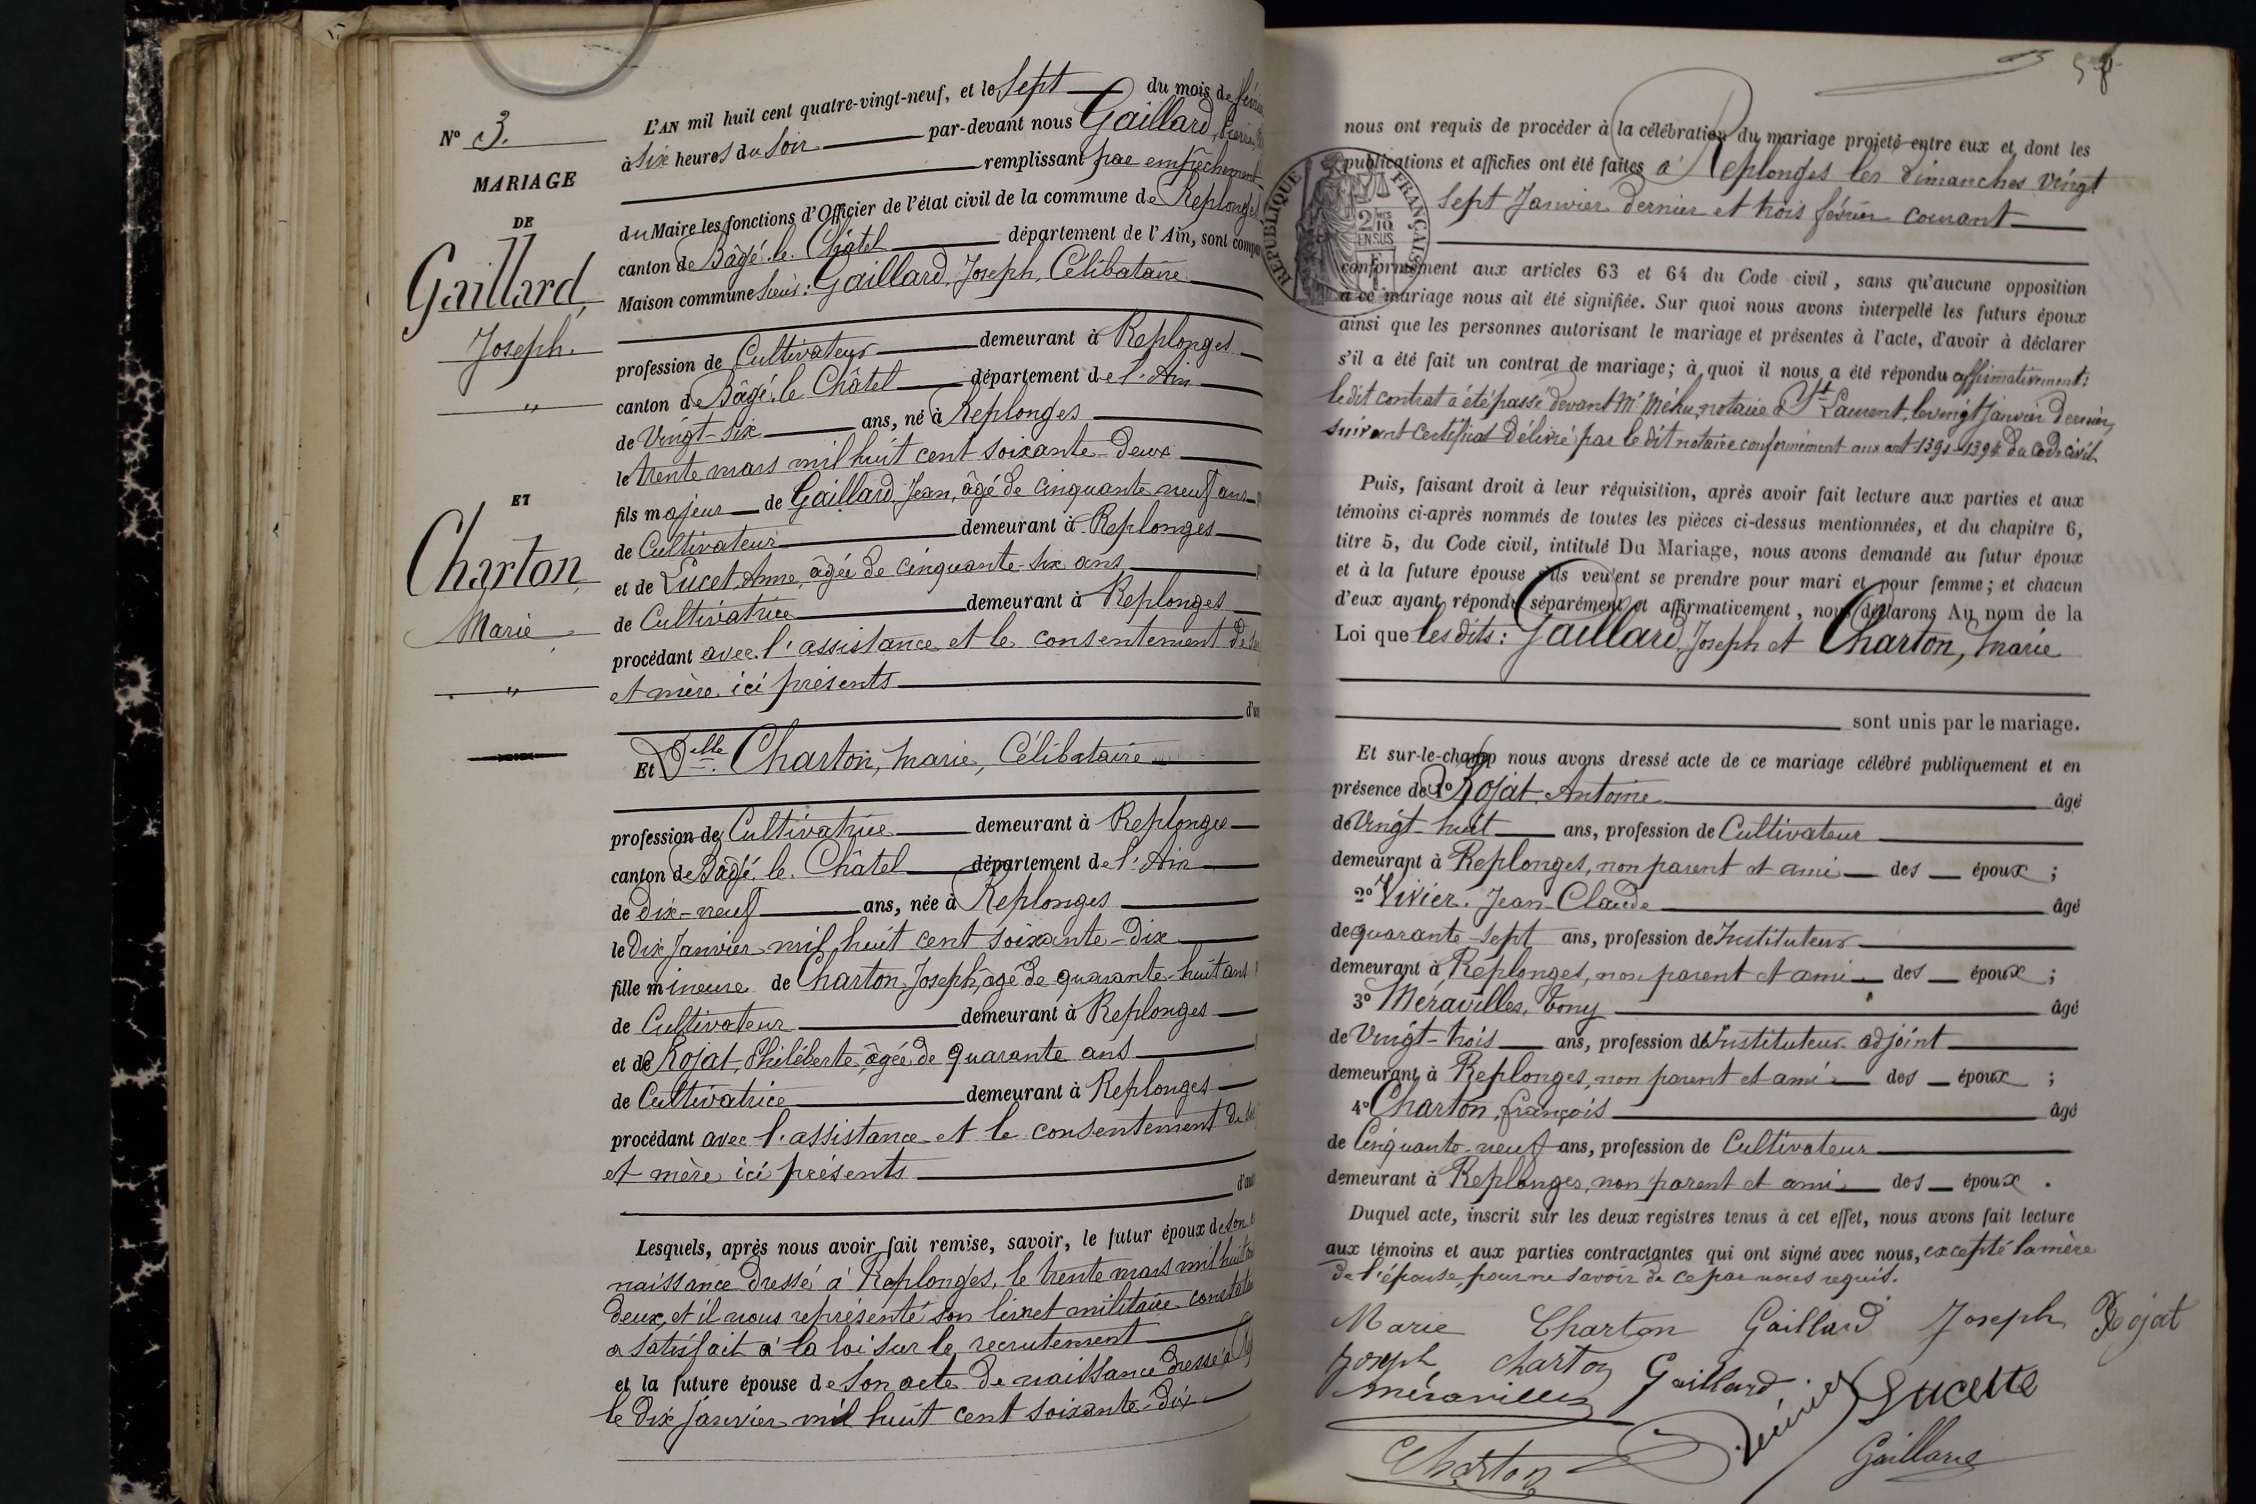 N° 3.
MARIAGE
DE
Gaillard,
Joseph.
"
ET
Charton,
Marie
"
L'AN mil huit cent quatre-vingt-neuf, et le Sept du mois de
à Six heures du Soir par-devant nous Gaillard,
remplissant par empêchement
du Maire les fonctions d'Officier de l'état civil de la commune de Replonges
canton de Bâgé-le-Châtel département de l'Ain, sont
Maison commune Sieur: Gaillard, Joseph, Célibataire
profession de Cultivateur demeurant à Replonges
canton de Bâgé-le Châtel département de l'Ain
de Vingt-six ans, né à Replonges
le trente mars mil huit cent soixante-deux
fils majeur de Gaillard Jean, âgé de cinquante neuf ans
de Cultivateur demeurant à Replonges
et de Lucet Anne, âgée de cinquante-six ans
de Cultivatrice demeurant à Replonges
procédant avec l'assistance et le consentement de
et mère ici présents
Et Delle Charton, Marie, Célibataire
profession de Cultivatrice demeurant à Replonges
canton de Bâgé-le-Châtel département de l'Ain
de dix-neuf ans, née à Replonges
le Dix Janvier mil huit cent soixante-dix
fille mineure de Charton Joseph, âgé de quarante-huit ans
de Cultivateur demeurant à Replonges
et de Rojat, Philéberte, âgée de quarante ans
de Cultivatrice demeurant à Replonges
procédant avec l'assistance et le consentement de
et mère ici présents
Lesquels, après nous avoir fait remise, savoir, le futur époux de son
naissance dressé à Replonges, le trente mars mil huit
deux, et il nous représenté son livret militaire
a satisfait à la loi sur le recrutement
et la future épouse de son acte de naissance dressé à
le dix Janvier mil huit cent soixante-dix
nous ont requis de procéder à la célébration du mariage projeté entre eux et dont les
publications et affiches ont été faites à Replonges les Dimanches vingt
sept Janvier dernier et trois février courant
RÉPUBLIQUE FRANÇAISE
conformément aux articles 63 et 64 du Code civil, sans qu'aucune opposition
à ce mariage nous ait été signifiée. Sur quoi nous avons interpellé les futurs époux
ainsi que les personnes autorisant le mariage et présentes à l'acte, d'avoir à déclarer
s'il a été fait un contrat de mariage; à quoi il nous a été répondu affirmativement:
le dit contrat a été passé devant Me Méhu, notaire à St Laurent, le vingt Janvier dernier,
suivant certificat délivré par le dit notaire conformément aux art 1391-1394 du code civil.
Puis, faisant droit à leur réquisition, après avoir fait lecture aux parties et aux
témoins ci-après nommés de toutes les pièces ci-dessus mentionnées, et du chapitre 6,
titre 5, du Code civil, intitulé Du Mariage, nous avons demandé au futur époux
et à la future épouse s'ils veulent se prendre pour mari et pour femme; et chacun
d'eux ayant répondu séparément et affirmativement, nous déclarons Au nom de la
Loi que les dits: Gaillard, Joseph et Charton, Marie
sont unis par le mariage.
Et sur-le-champ nous avons dressé acte de ce mariage célébré publiquement et en
présence de 1° Rojat Antoine âgé
de Vingt-huit ans, profession de Cultivateur
demeurant à Replonges, non parent et ami des époux;
2° Vivier Jean-Claude âgé
de quarante-sept ans, profession de Instituteur
demeurant à Replonges, non parent et ami des époux;
3° Méravilles, Tony âgé
de Vingt-trois ans, profession de Instituteur adjoint
demeurant à Replonges, non parent et ami des époux;
4° Charton, françois âgé
de Cinquante-neuf ans, profession de Cultivateur
demeurant à Replonges, non parent et ami des époux.
Duquel acte, inscrit sur les deux registres tenus à cet effet, nous avons fait lecture
aux témoins et aux parties contractantes qui ont signé avec nous, excepté la mère
de l'épouse, pour ne savoir de ce par nous requis.
Marie Charton Gaillard Joseph Rojat
Joseph Charton Gaillard
Méravilles Lucette
Charton Gaillard